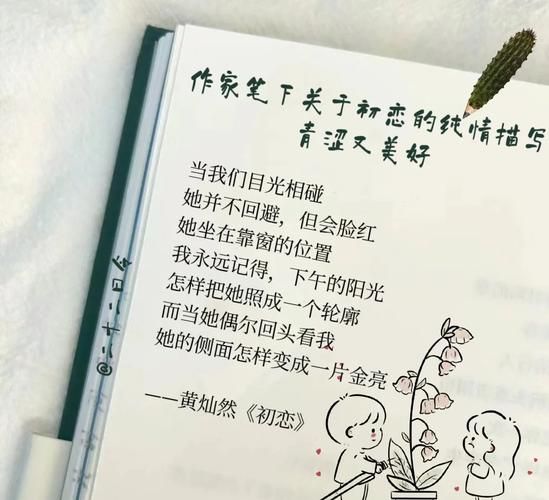 作家笔下关于初恋的纯情描写
青涩又美好
当我们目光相碰
她并不回避，但会脸红
她坐在靠窗的位置
我永远记得，下午的阳光
怎样把她照成一个轮廓
而当她偶尔回头看我
她的侧面怎样变成一片金亮
——黄灿然《初恋》
@二十二日冬